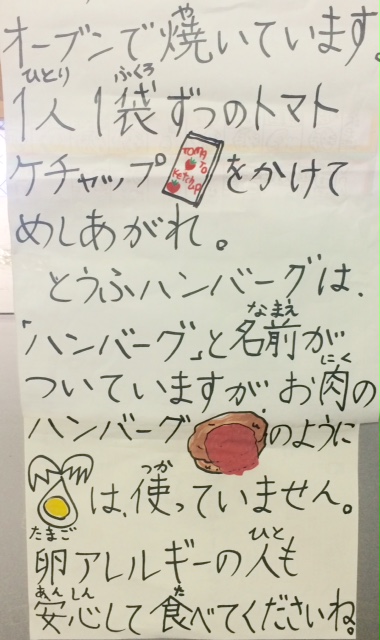 や
オーブンで焼いています。
ひとり ふくろ
1人1袋ずつのトマト
ケチャップ
TOMA
TO
KETCH
UP
をかけて
めしあがれ。
とうふハンバーグは、
なまえ
「ハンバーグ」と名前が
にく
ついていますが、お肉の
ハンバーグのように
つか
は、使っていません。
たまご ひと
卵アレルギーの人も
あんしん た
安心して食べてくださいね。